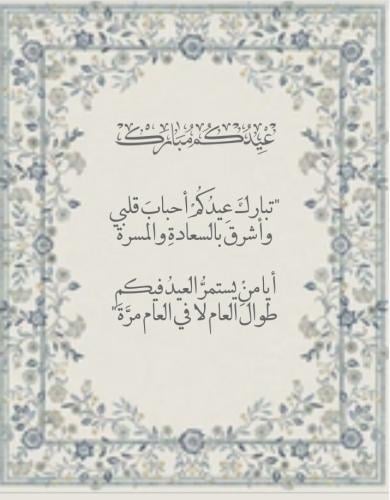 عيدكم مبارك
"تباركَ عِيدُكُمْ أحبابَ قلبي
وأشرقَ بالسعادةِ والمسرة
أيا منْ يستمرُّ العيدُ فيكم
طوالَ العامِ لا في العام مرَّةَ"